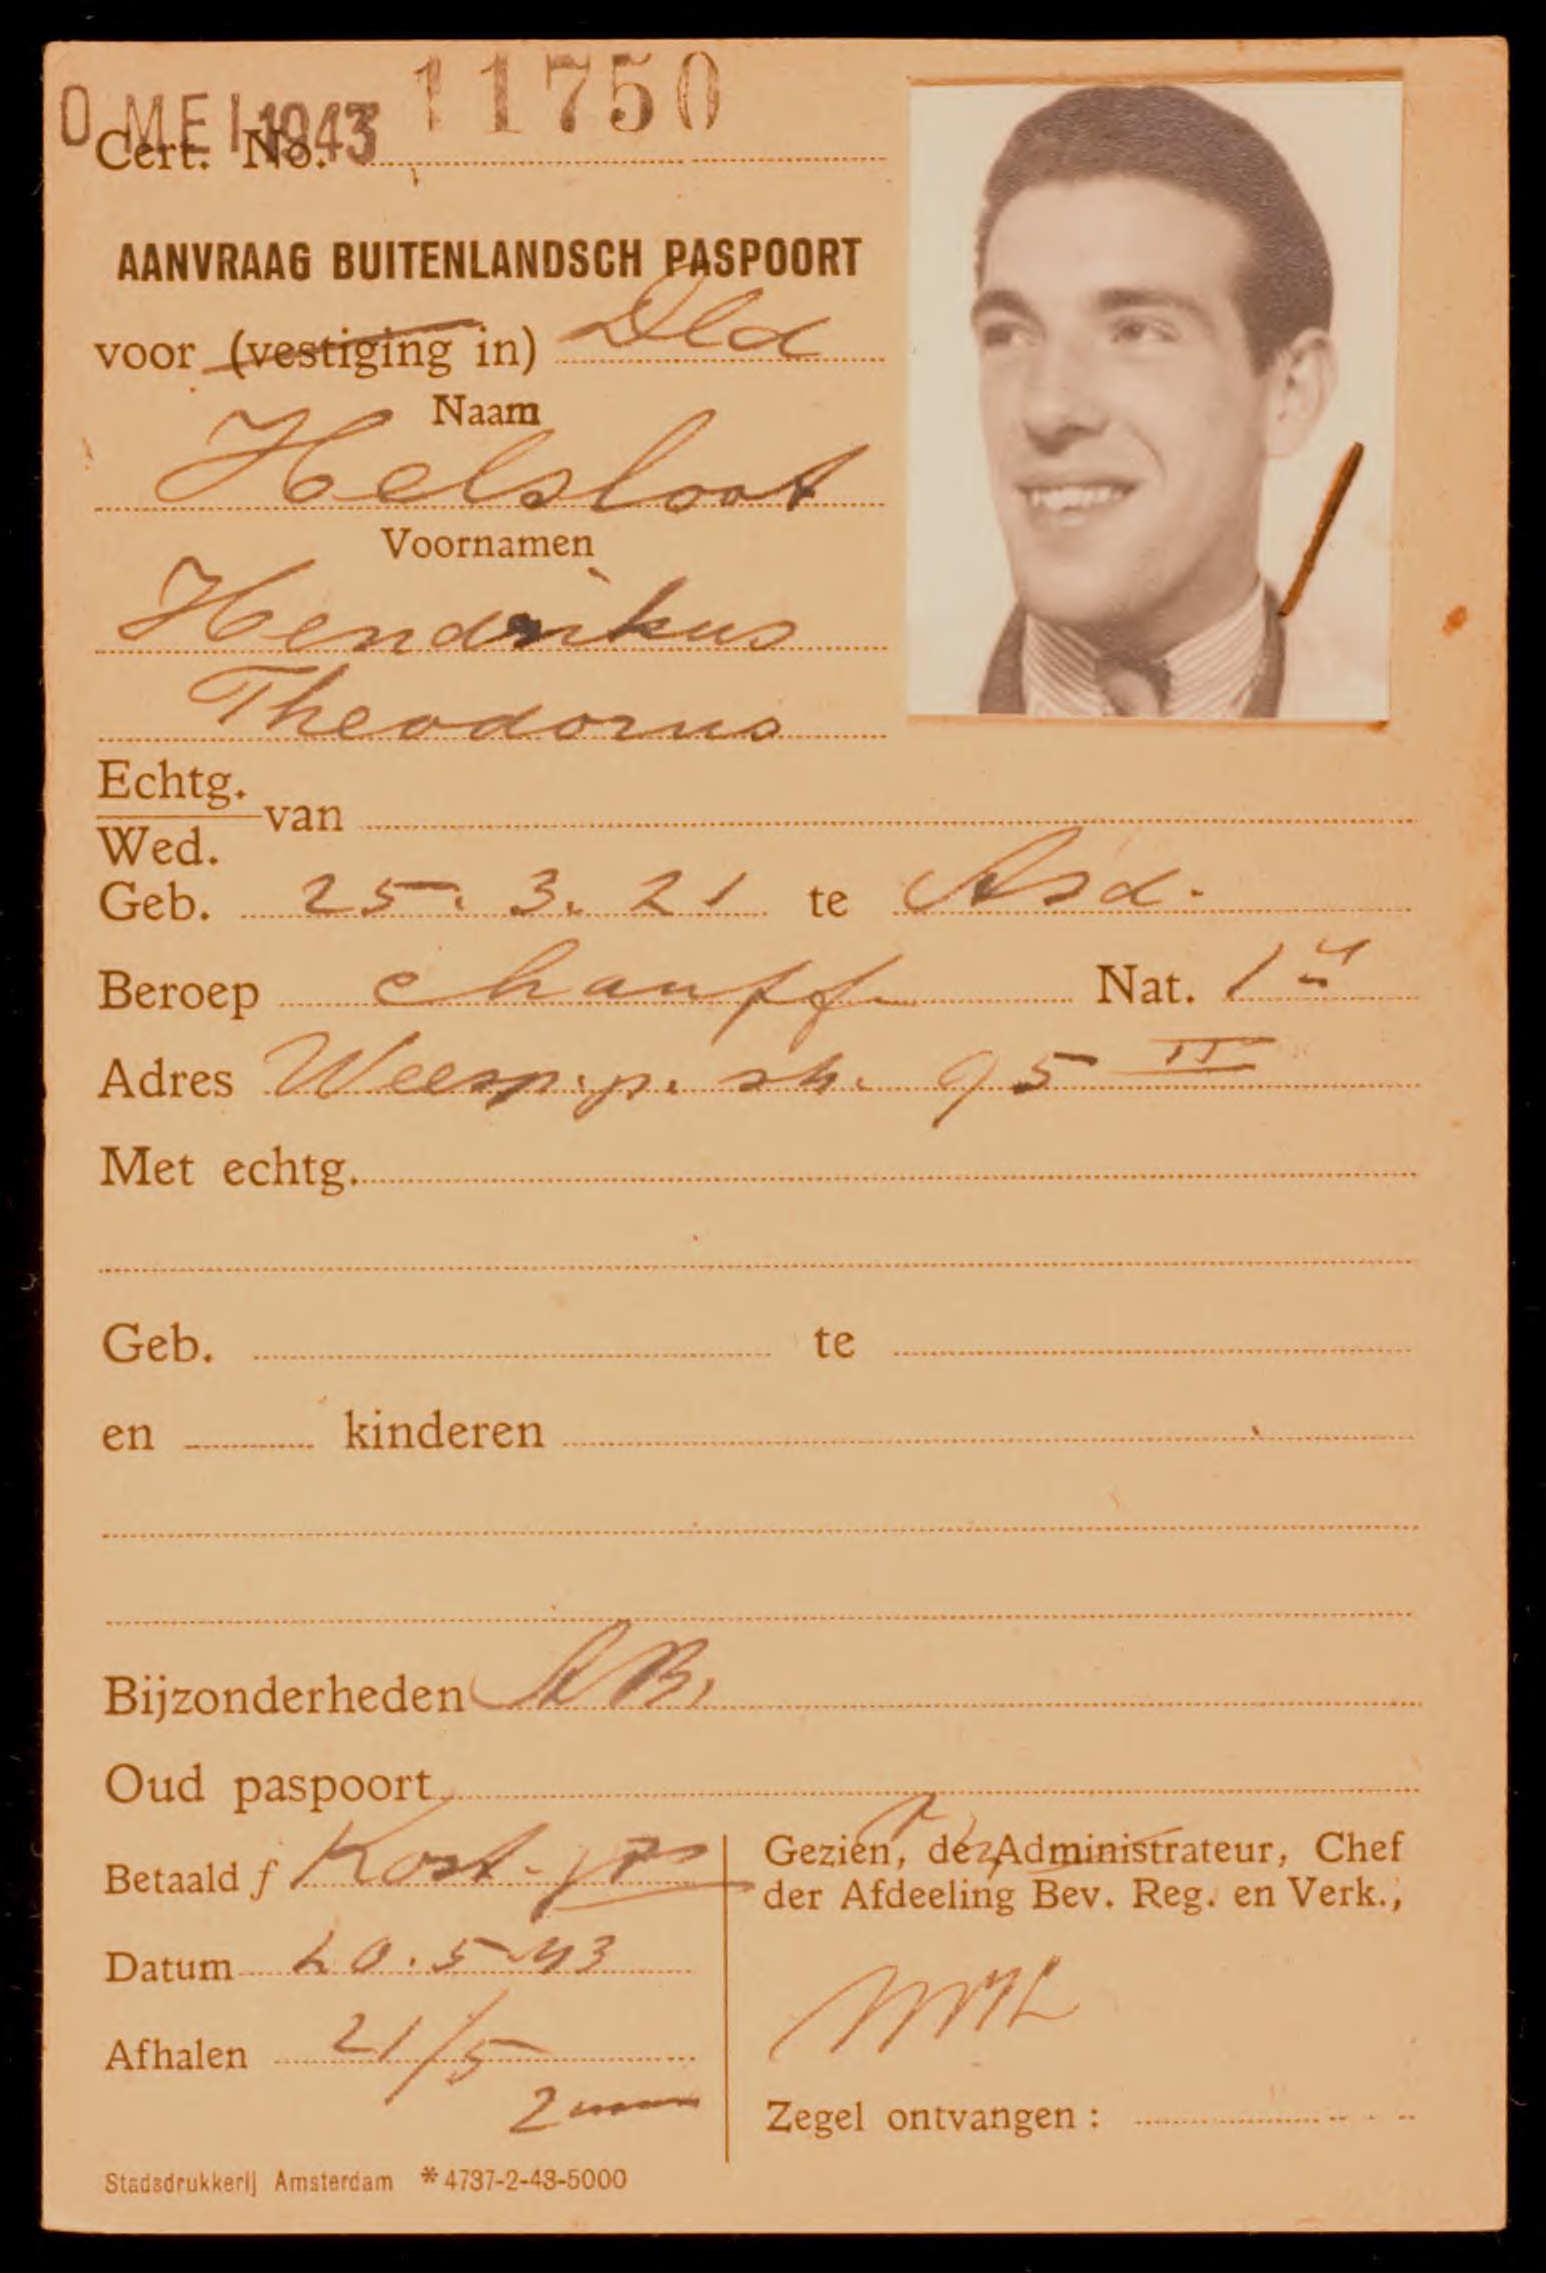 0 MEI 1943 11750
Cert. No.
AANVRAAG BUITENLANDSCH PASPOORT
voor (vestiging in) Dld
Naam
Helsloot
Voornamen
Hendrikus
Theodorus
Echtg.
Wed. van
Geb. 25. 3. 21 te Asd.
Beroep chauff Nat.
Adres Weesp.p. str. 95 II
Met echtg.
Geb. te
en kinderen
Bijzonderheden AB.
Oud paspoort
Betaald f Kost.
Gezien, de Administrateur, Chef
der Afdeeling Bev. Reg. en Verk.,
Datum 20.5-43
Afhalen 21/5
2
Zegel ontvangen :
Stadsdrukkerij Amsterdam * 4737-2-43-5000